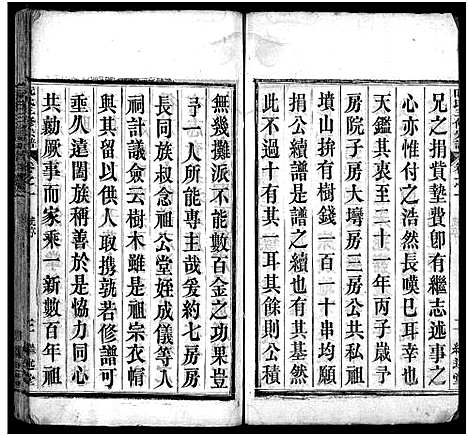 兄之捐貲墊費卽有繼志述事之
心亦惟付之於長嘆巳耳幸也
天鑑其衷至二十一年丙子歲予
房院子房大塆房三房公共私祖
墳山拚有樹錢一百一十串均願
捐公續譜是公續譜不過於公積
此不過十一耳其餘則公積
無幾攤派不能數百金之功果豈
予一人所能專主哉爰約七房房
長同族叔念祖公堂姪成儀等入
祠計議僉云樹木雖是祖宗衣帽
與其留以供人攜取孰若修譜可
垂久遠闔族稱善於是恊力同心
共勷厥事而家乘一新數百年祖